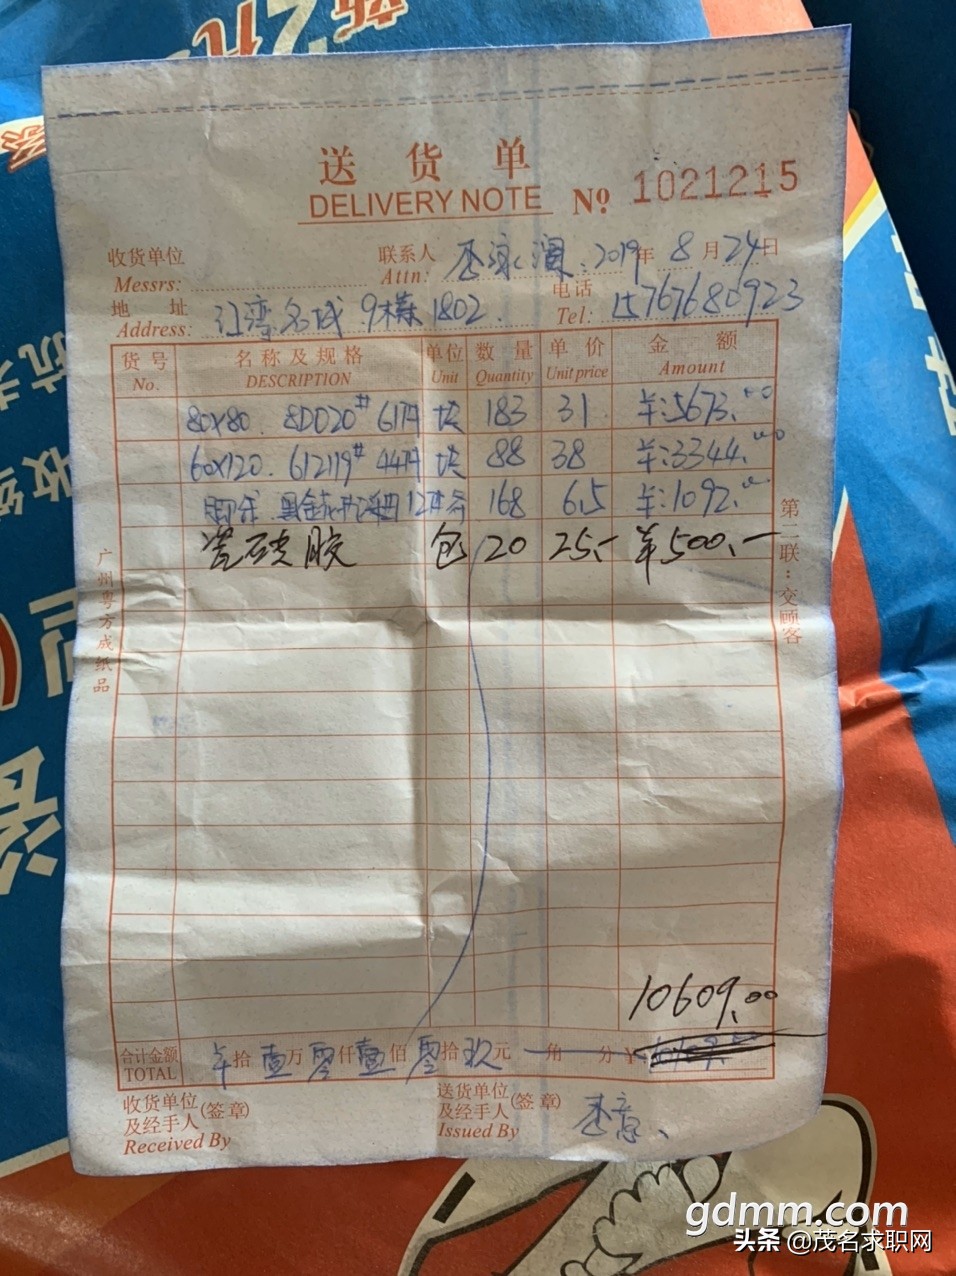 送 货 单
DELIVERY NOTE № 1021215
收货单位 联系人 2019年 8月24日
Messrs: Attn:
地 址 江湾名城 9栋 1802. 电话 15767680923
Address: Tel:
货号 名称及规格 单位 数量 单价 金 额
No. DESCRIPTION Unit Quantity Unit price Amount
80X80. 8DD20# 61件 块 183 31 ¥:5673.00
60X120. 612119# 44件 块 88 38 ¥:3344.00
168 6.5 ¥:1092.00
瓷砖胶 包 20 25.- ¥500.-
第二联：交顾客
广州粤方成纸品
10609.00
合计金额 拾壹万零仟壹佰零拾玖元 角 分 ¥
TOTAL
收货单位及经手人(签章)
Received By
送货单位及经手人(签章)
Issued By
gdmm.com
头条 @茂名求职网